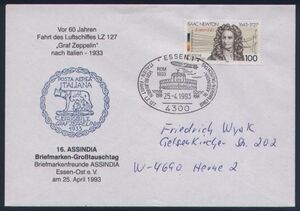 Vor 60 Jahren
Fahrt des Luftschiffes LZ 127
„Graf Zeppelin"
nach Italien - 1933
POSTA AEREA
ITALIANA
GRAF ZEPPELIN
1933
16. ASSINDIA
Briefmarken-Großtauschtag
Briefmarkenfreunde ASSINDIA
Essen-Ost e.V.
am 25. April 1993
ISAAC NEWTON
1643-1727
100
ESSEN
ROM
1933
25.-4.1993
4300
Friedrich
Gelsenkirchen Str. 202
W-4690 Herne 2